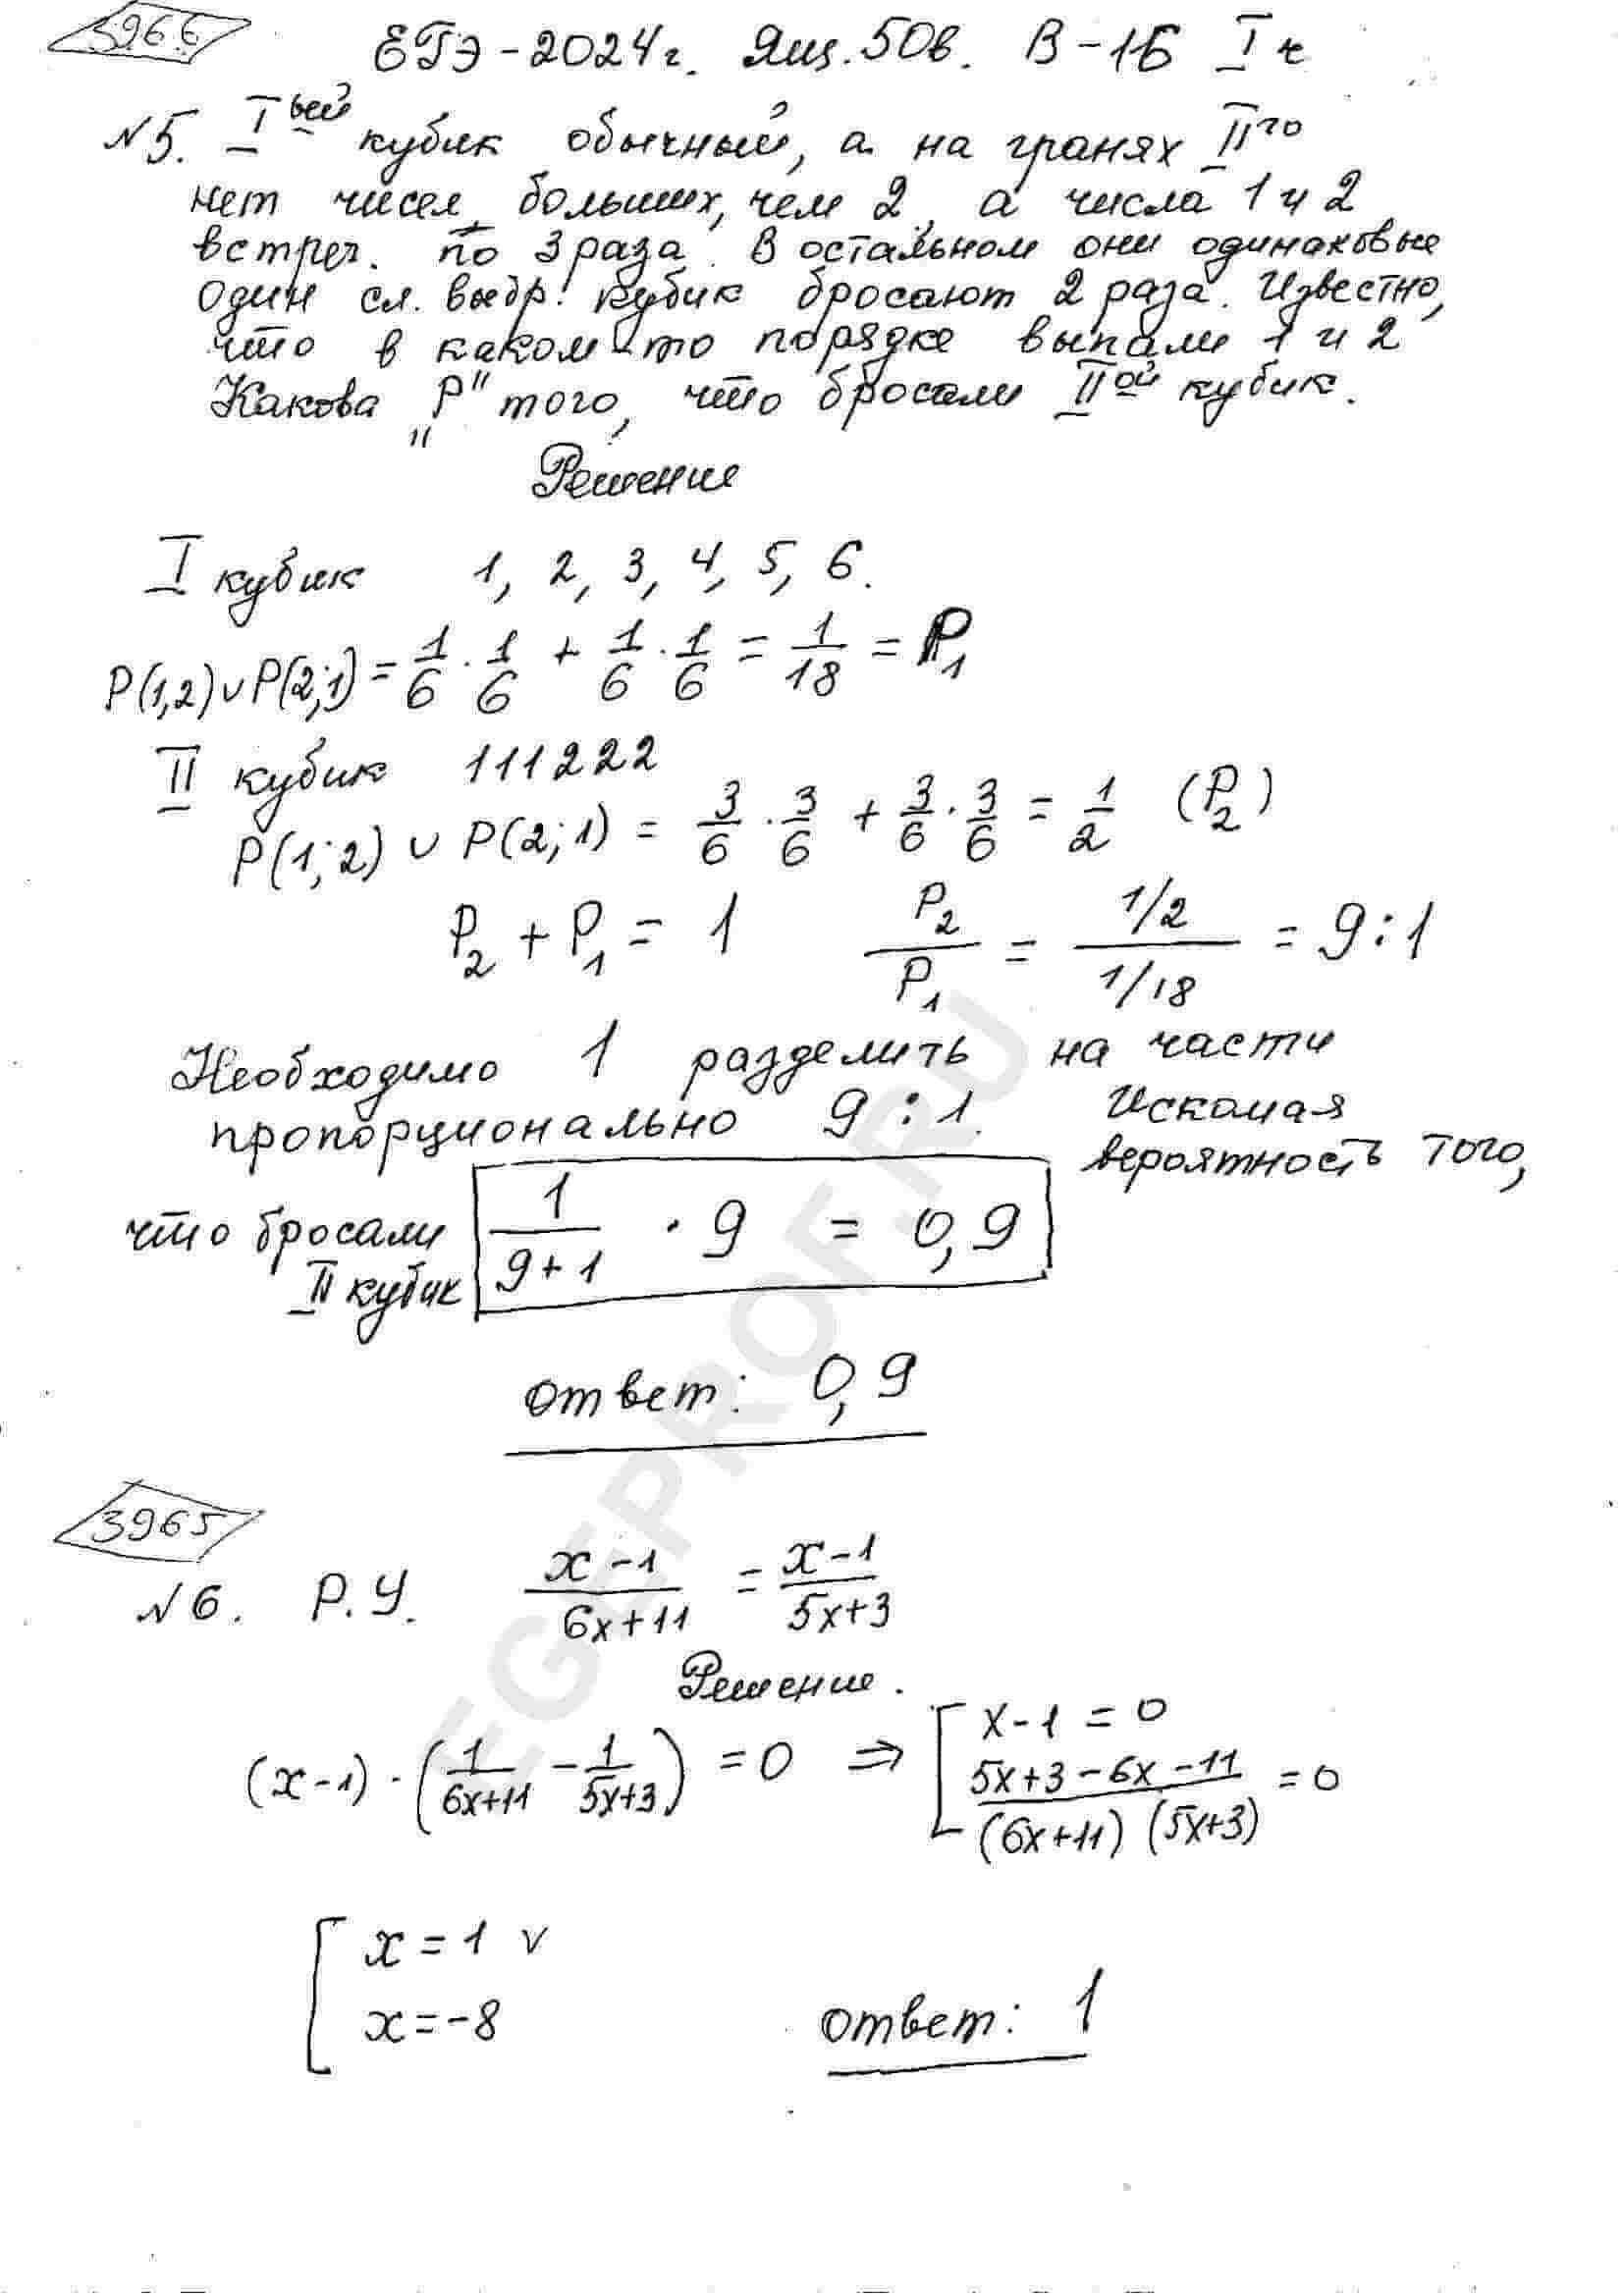 3966
ЕГЭ-2024г. Ящ. 50в. В-16 I ч
№5. I ый кубик обычный, а на гранях II го
нет чисел, больших, чем 2, а числа 1 и 2
встреч. по 3 раза. В остальном они одинаковые
Один сл. выбр. кубик бросают 2 раза. Известно,
что в каком-то порядке выпали 1 и 2
Какова "P" того, что бросали II ой кубик.
Решение
I кубик 1, 2, 3, 4, 5, 6.
P(1,2) ∪ P(2;1) = 1/6 · 1/6 + 1/6 · 1/6 = 1/18 = P₁
II кубик 111222
P(1;2) ∪ P(2;1) = 3/6 · 3/6 + 3/6 · 3/6 = 1/2 (P₂)
P₂ + P₁ = 1 P₂/P₁ = (1/2)/(1/18) = 9:1
Необходимо 1 разделить на части
пропорционально 9:1. Искомая
вероятность того,
что бросали II кубик 1/(9+1) · 9 = 0,9
ответ: 0,9
3965
№6. Р.У. (x-1)/(6x+11) = (x-1)/(5x+3)
Решение.
(x-1)·(1/(6x+11) - 1/(5x+3)) = 0 ⇒ [ x-1=0
(5x+3-6x-11)/((6x+11)(5x+3)) = 0
[ x=1 v
x=-8
ответ: 1
EGEPROF.RU